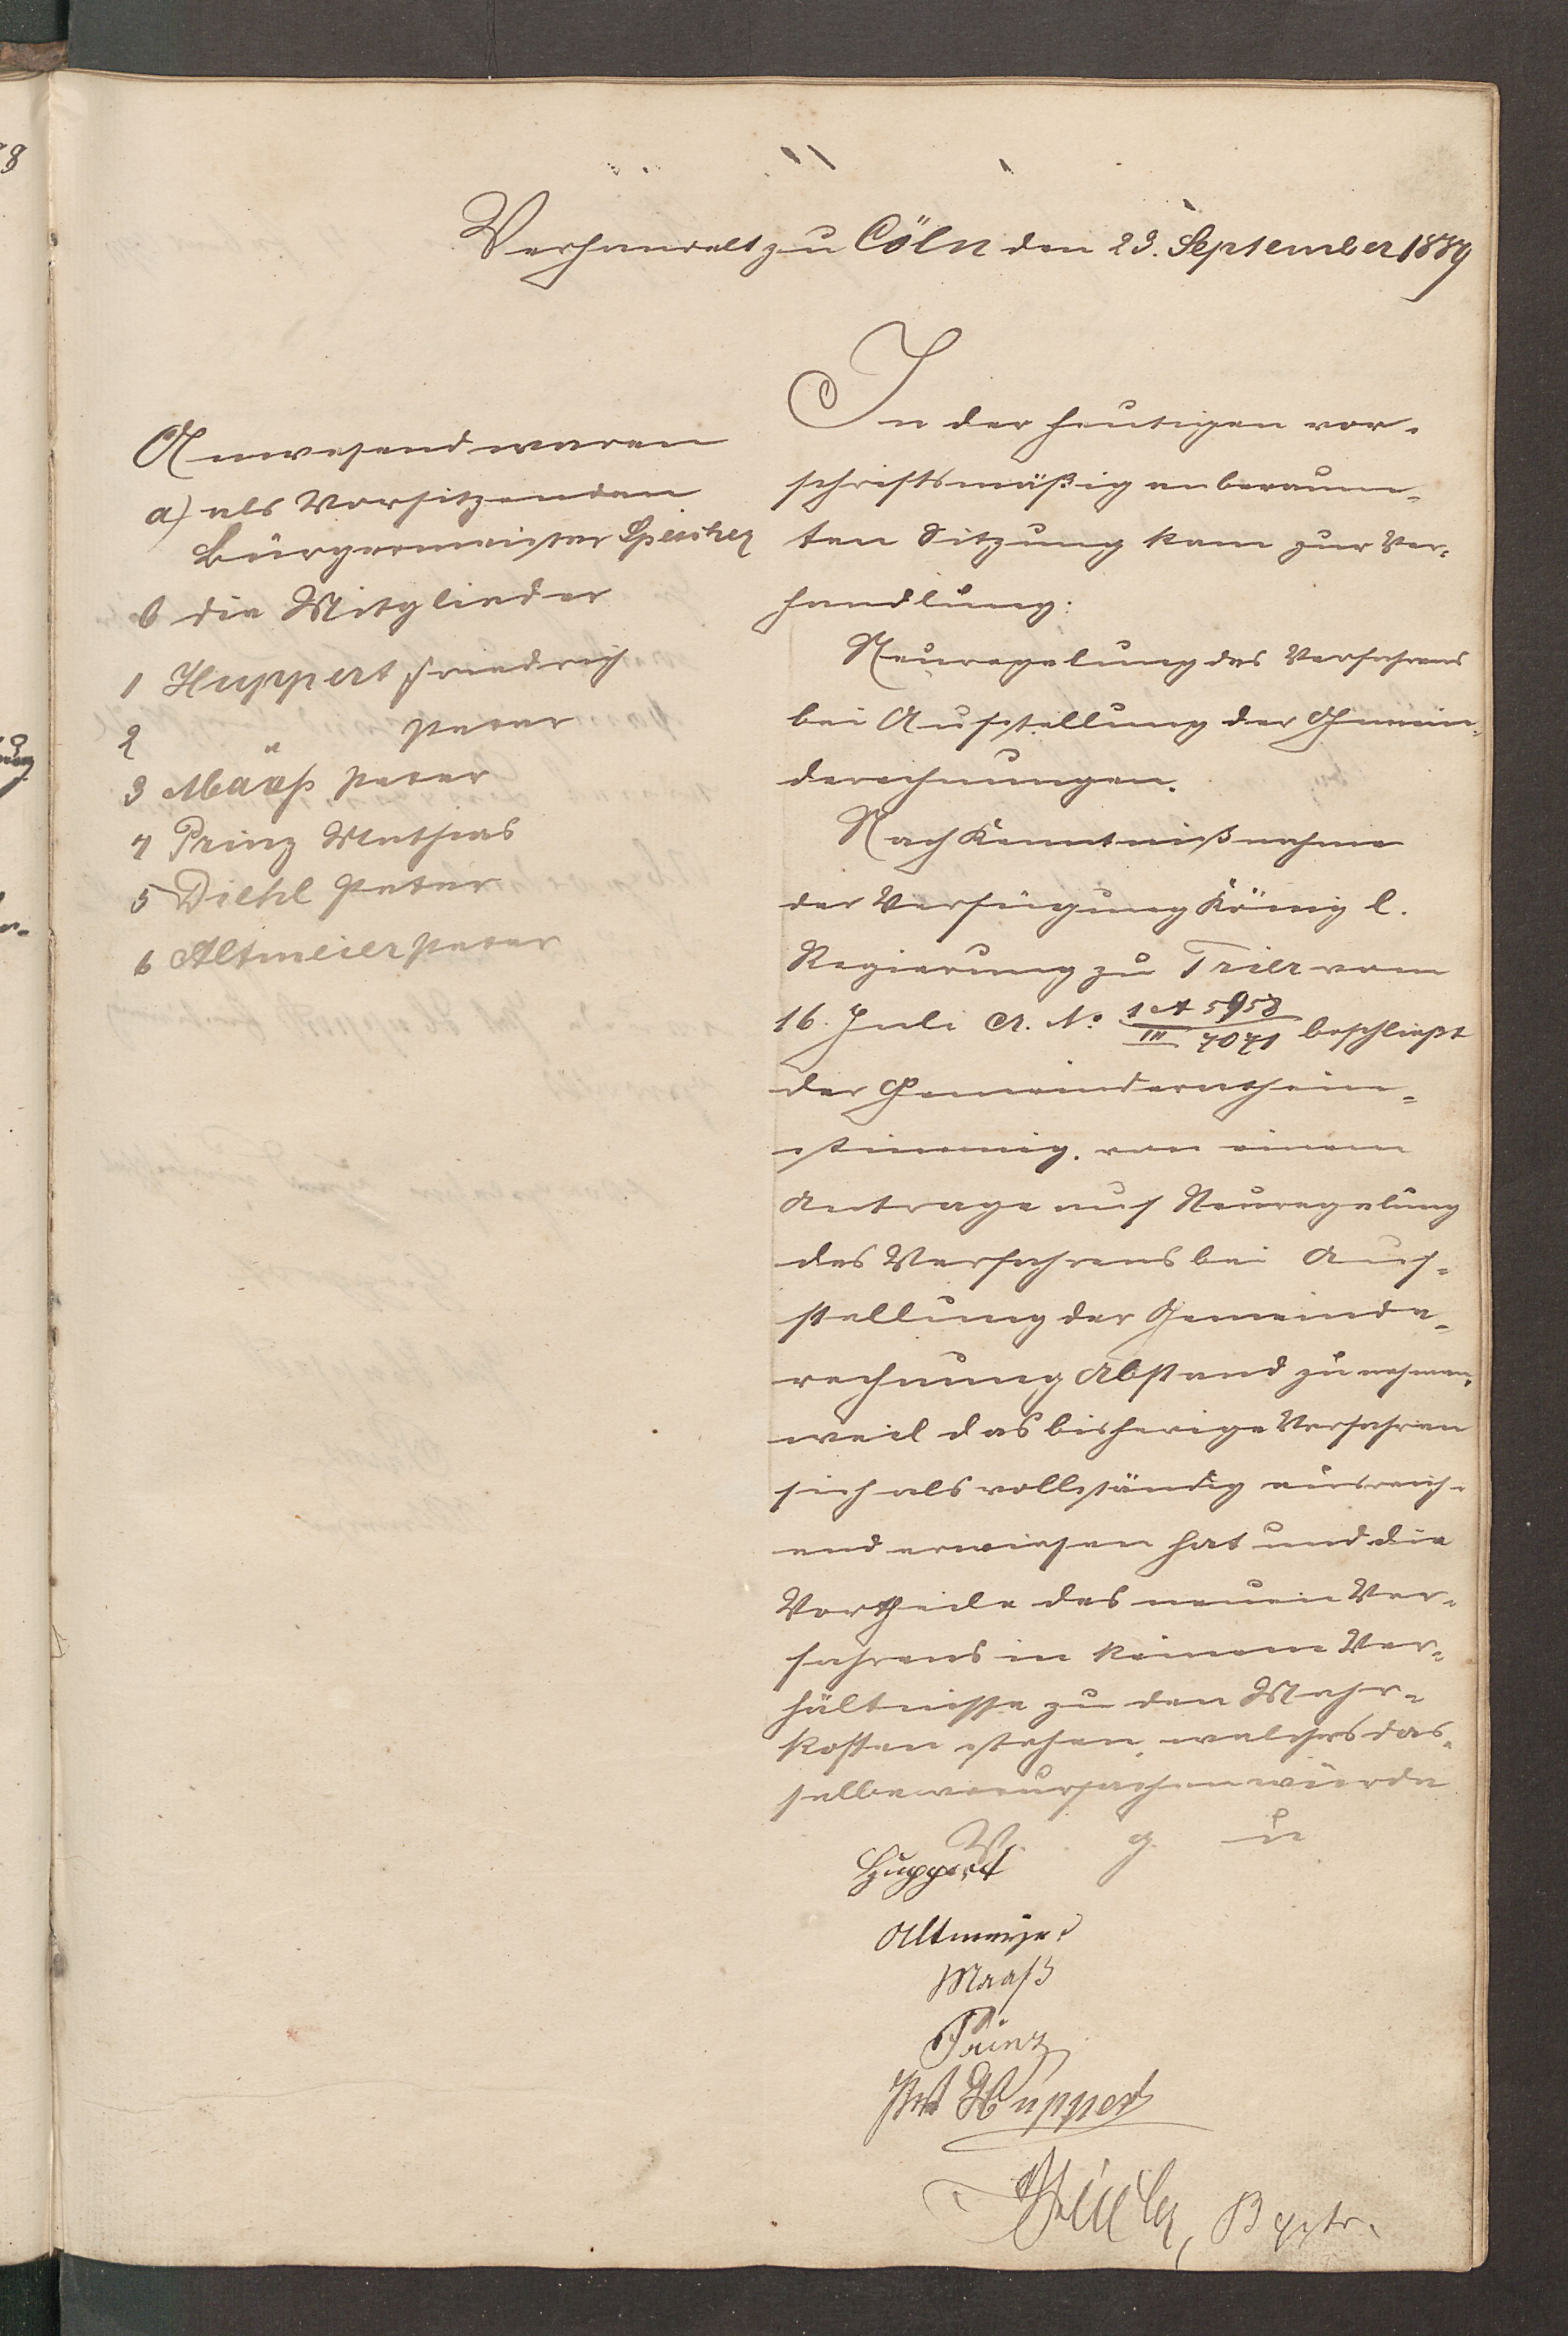 Verhandelt zu Cöln den 23. September 1889
Anwesend waren
a) als Vorsitzenden
Bürgermeister Speicher
b die Mitglieder
1 Huppert Friedrich
2 " Peter
3 Maaß Peter
4 Prinz Mathias
5 Diehl Peter
6 Altmeier Peter
In der heutigen vor-
schriftsmäßig anberaum-
ten Sitzung kam zur Ver-
handlung:
Neuregelung des Verfahrens
bei Aufstellung der Gemein-
derechnungen.
Nach Kenntnißnahme
der Verfügung Königl.
Regierung zu Trier vom
16. Juli cr. No 1 A 5958 / III 4041 beschließt
der Gemeinderath ein-
stimmig, von einem
Antrage auf Neuregelung
des Verfahrens bei Auf-
stellung der Gemeinde-
rechnung Abstand zu nehmen,
weil das bisherige Verfahren
sich als vollständig ausreich-
end erwiesen hat und die
Vortheile des neuen Ver-
fahrens in keinem Ver-
hältnisse zu den Mehr-
kosten stehen, welches das-
selbe verursachen würde
V. g. u
Huppert
Altmeyer
Maaß
Prinz
Pet Huppert
Bgstr.